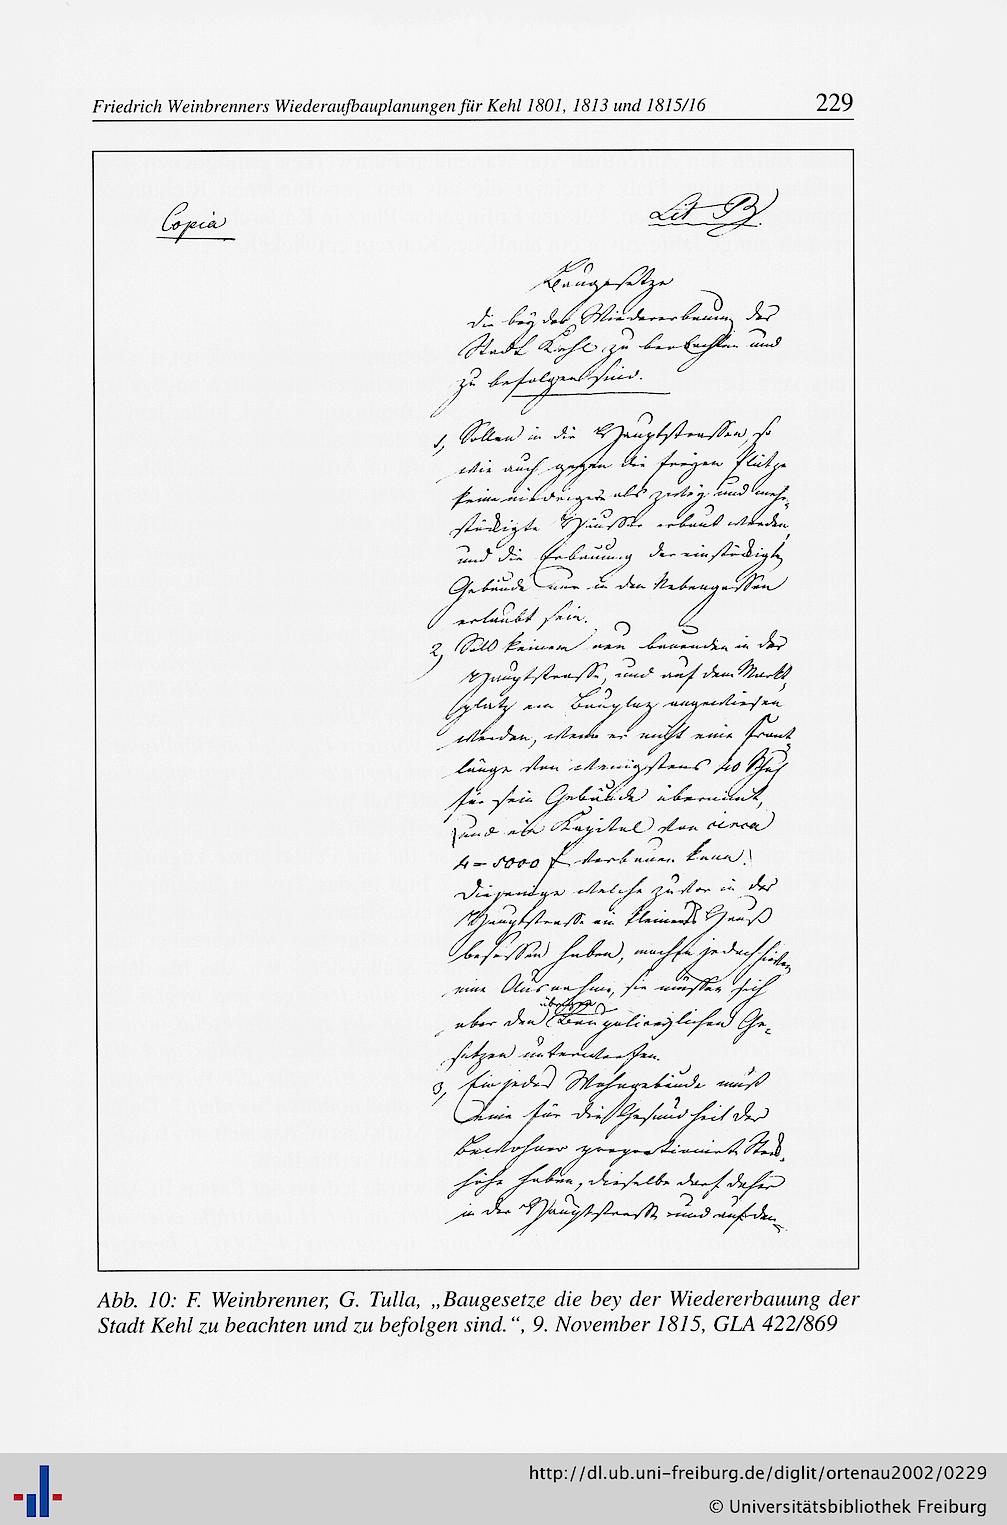 Friedrich Weinbrenners Wiederaufbauplanungen für Kehl 1801, 1813 und 1815/16
229
Copia
Lit B
Baugesetze
die bey der Wiedererbauung der
Stadt Kehl zu beobachten und
zu befolgen sind.
1, Sollen in die Hauptstrassen, so
wie auch gegen die freyen Plätze
keine niedrigere als zwey und mehr-
stöckigte Häusser erbaut werden,
und die Erbauung der einstöckigten
Gebäude nur in den Nebengassen
erlaubt sein.
2, Soll keinem neu bauenden in der
Hauptstrasse, und auf dem Markt-
platz ein Bauplaz angewiesen
werden, wenn er nicht eine Front-
länge von wenigstens 40 Schuh
für sein Gebäude übernimmt,
und ein Kapital von circa
4=5000 f verbauen kann.
Diejenige welche zuvor in der
Hauptstrasse ein kleineres Hauß
besessen haben, machen jedoch hievon
eine Ausnahme, sie müssen sich
aber den übrigen Baupolizeylichen Ge-
setzen unterwerfen.
3, Ein jedes Wohngebäude muß
eine für die Gesundheit der
Bewohner proportionirte Stock-
höhe haben, dieselbe darf daher
in der Hauptstrasse und auf dem
Abb. 10: F. Weinbrenner, G. Tulla, „Baugesetze die bey der Wiedererbauung der
Stadt Kehl zu beachten und zu befolgen sind.“, 9. November 1815, GLA 422/869
http://dl.ub.uni-freiburg.de/diglit/ortenau2002/0229
© Universitätsbibliothek Freiburg